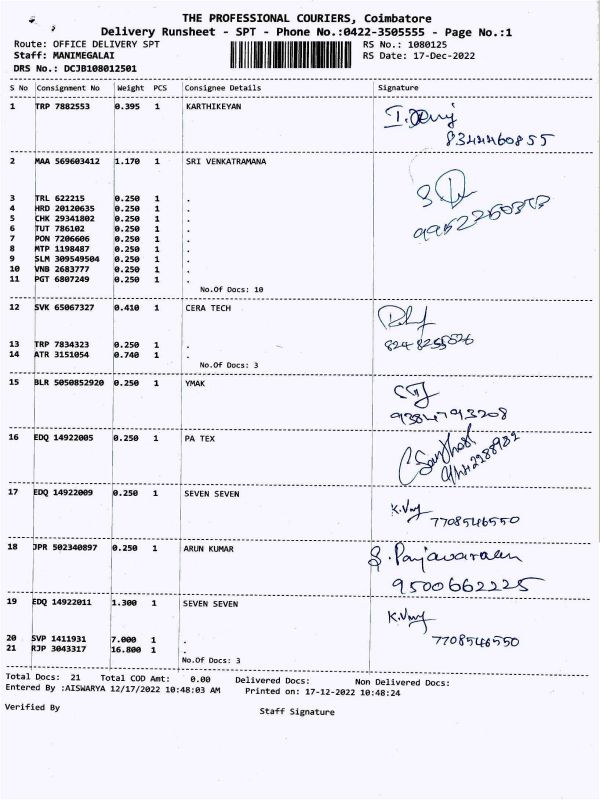 THE PROFESSIONAL COURIERS, Coimbatore
Delivery Runsheet - SPT - Phone No.:0422-3505555 - Page No.:1
Route: OFFICE DELIVERY SPT RS No.: 1080125
Staff: MANIMEGALAI RS Date: 17-Dec-2022
DRS No.: DCJB108012501
S No Consignment No Weight PCS Consignee Details Signature
1 TRP 7882553 0.395 1 KARTHIKEYAN
8344460855
2 MAA 569603412 1.170 1 SRI VENKATRAMANA
3 TRL 622215 0.250 1 .
4 HRD 20120635 0.250 1 .
5 CHK 29341802 0.250 1 .
6 TUT 786102 0.250 1 .
7 PON 7206606 0.250 1 .
8 MTP 1198487 0.250 1 .
9 SLM 309549504 0.250 1 .
10 VNB 2683777 0.250 1 .
11 PGT 6807249 0.250 1 .
No.Of Docs: 10
12 SVK 65067327 0.410 1 CERA TECH
13 TRP 7834323 0.250 1 .
14 ATR 3151054 0.740 1 .
No.Of Docs: 3
15 BLR 5050852920 0.250 1 YMAK
9384793208
16 EDQ 14922005 0.250 1 PA TEX
17 EDQ 14922009 0.250 1 SEVEN SEVEN
7708546550
18 JPR 502340897 0.250 1 ARUN KUMAR
9500662225
19 EDQ 14922011 1.300 1 SEVEN SEVEN
7708546550
20 SVP 1411931 7.000 1 .
21 RJP 3043317 16.800 1 .
No.Of Docs: 3
Total Docs: 21 Total COD Amt: 0.00 Delivered Docs: Non Delivered Docs:
Entered By :AISWARYA 12/17/2022 10:48:03 AM Printed on: 17-12-2022 10:48:24
Verified By Staff Signature